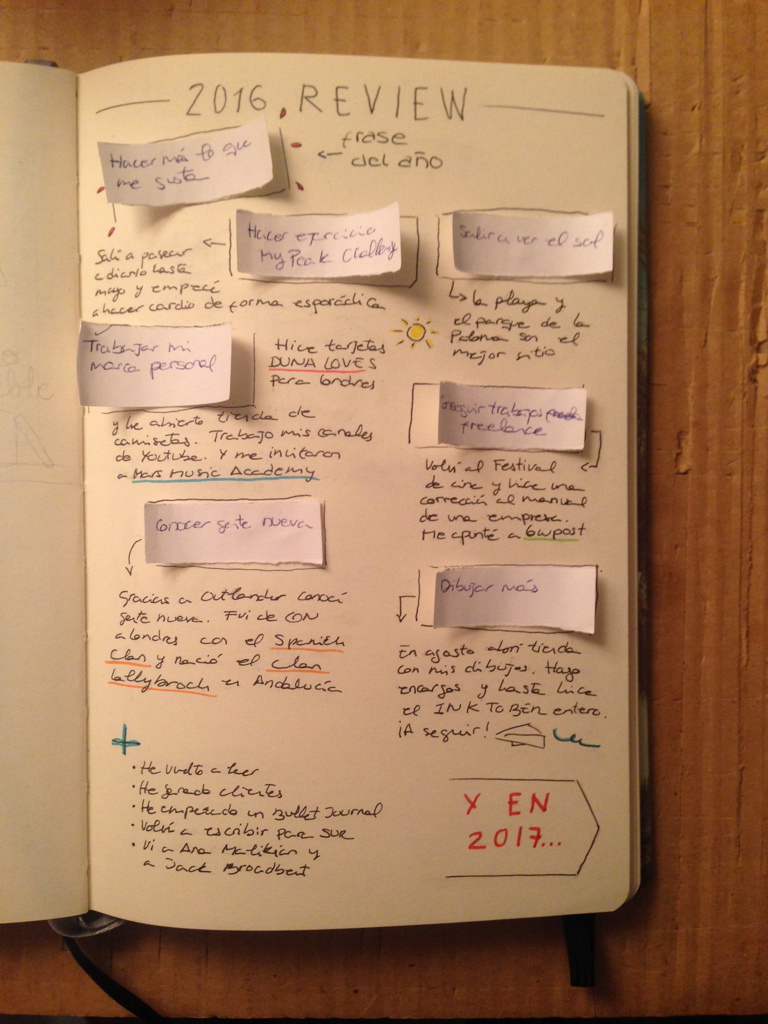 2016 REVIEW
Hacer más lo que
me gusta
← frase
del año
Hacer ejercicio
My Peak Challenge
Salí a pasear
a diario hasta
mayo y empecé
a hacer cardio de forma esporádica
Salir a ver el sol
La playa y
el parque de la
Paloma son el
mejor sitio
Trabajar mi
marca personal
Hice tarjetas
DUNA LOVES
para londres
y he abierto tienda de
camisetas. Trabajo mis canales
de Youtube. Y me invitaron
a Mars Music Academy
Conseguir trabajos
freelance
Volví al Festival
de cine y hice una
corrección al manual
de una empresa.
Me apunté a
Conocer gente nueva
Gracias a Outlander conocí
gente nueva. Fui de CON
a londres con el Spanish
Clan y nació el Clan
Lallybroch en Andalucía
Dibujar más
En agosto abrí tienda
con mis dibujos. Hago
encargos y hasta hice
el INKTOBER entero.
¡A seguir!
+
• He vuelto a leer
• He ganado clientes
• He empezado un Bullet Journal
• Volví a escribir para SUR
• Vi a Ara Malikian y
a Jack Broadbent
Y EN
2017...